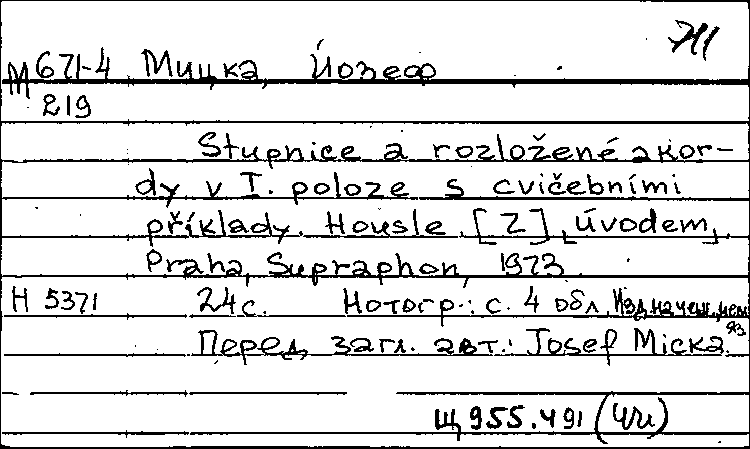 М 671-4 Мицка, Йозеф
219
Stupnice a rozložené akor-
dy v I. poloze s cvičebními
příklady. Housle. [Z] úvodem.
Praha, Supraphon, 1973.
Н 5371 24с. Нотогр.: с. 4 обл. Изд. на чеш., нем.
яз.
Перед загл. авт.: Josef Micka
Щ 955.491